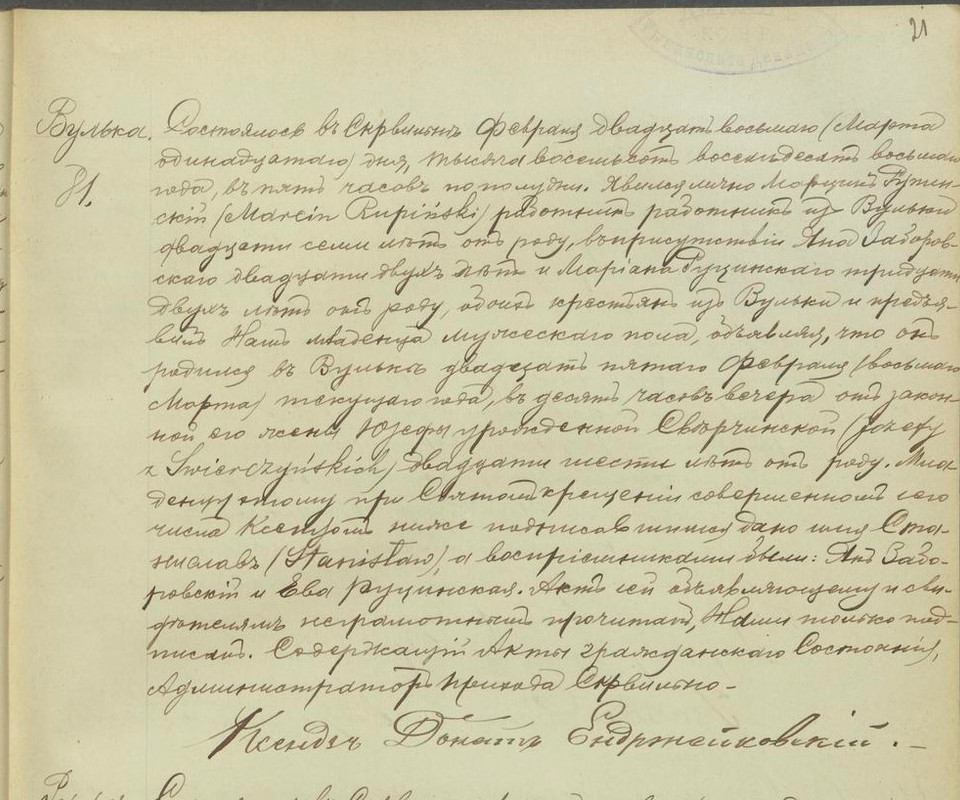 21
Вулька. Состоялось въ Скрвильнѣ Февраля двадцать восьмаго (Марта
81. одинадцатаго) дня, тысяча восемьсотъ восемьдесятъ восьмаго
года, въ пять часовъ по полудни. Явился лично Марцинъ Рупин-
скій (Marcin Rupiński) работникъ работникъ изъ Вульки
двадцати семи лѣтъ отъ роду, въ присутствіи Яна Задоров-
скаго двадцати двухъ лѣтъ и Маріана Руцинскаго тридцати
двухъ лѣтъ отъ роду, обоихъ крестьянъ изъ Вульки и предъя-
вилъ Намъ младенца мужескаго пола, объявляя, что онъ
родился въ Вулькѣ двадцать пятаго Февраля (восьмаго
Марта) текущаго года, въ десять часовъ вечера отъ закон-
ной его жены Юзефы урожденной Свѣрчинской (Józefy
z Świerczyńskich) двадцати шести лѣтъ отъ роду. Мла-
денцу этому при Святомъ крещеніи совершенномъ сего
числа Ксендзомъ ниже подписавшимся дано имя Ста-
ниславъ (Stanisław), а воспріемниками были: Янъ Задо-
ровскій и Ева Руцинская. Актъ сей объявляющему и сви-
дѣтелямъ неграмотнымъ прочитанъ, Нами только под-
писанъ. Содержащій Акты Гражданскаго Состоянія,
Администраторъ Прихода Скрвильно –
Ксендзъ Донатъ Ендржейковскій. –